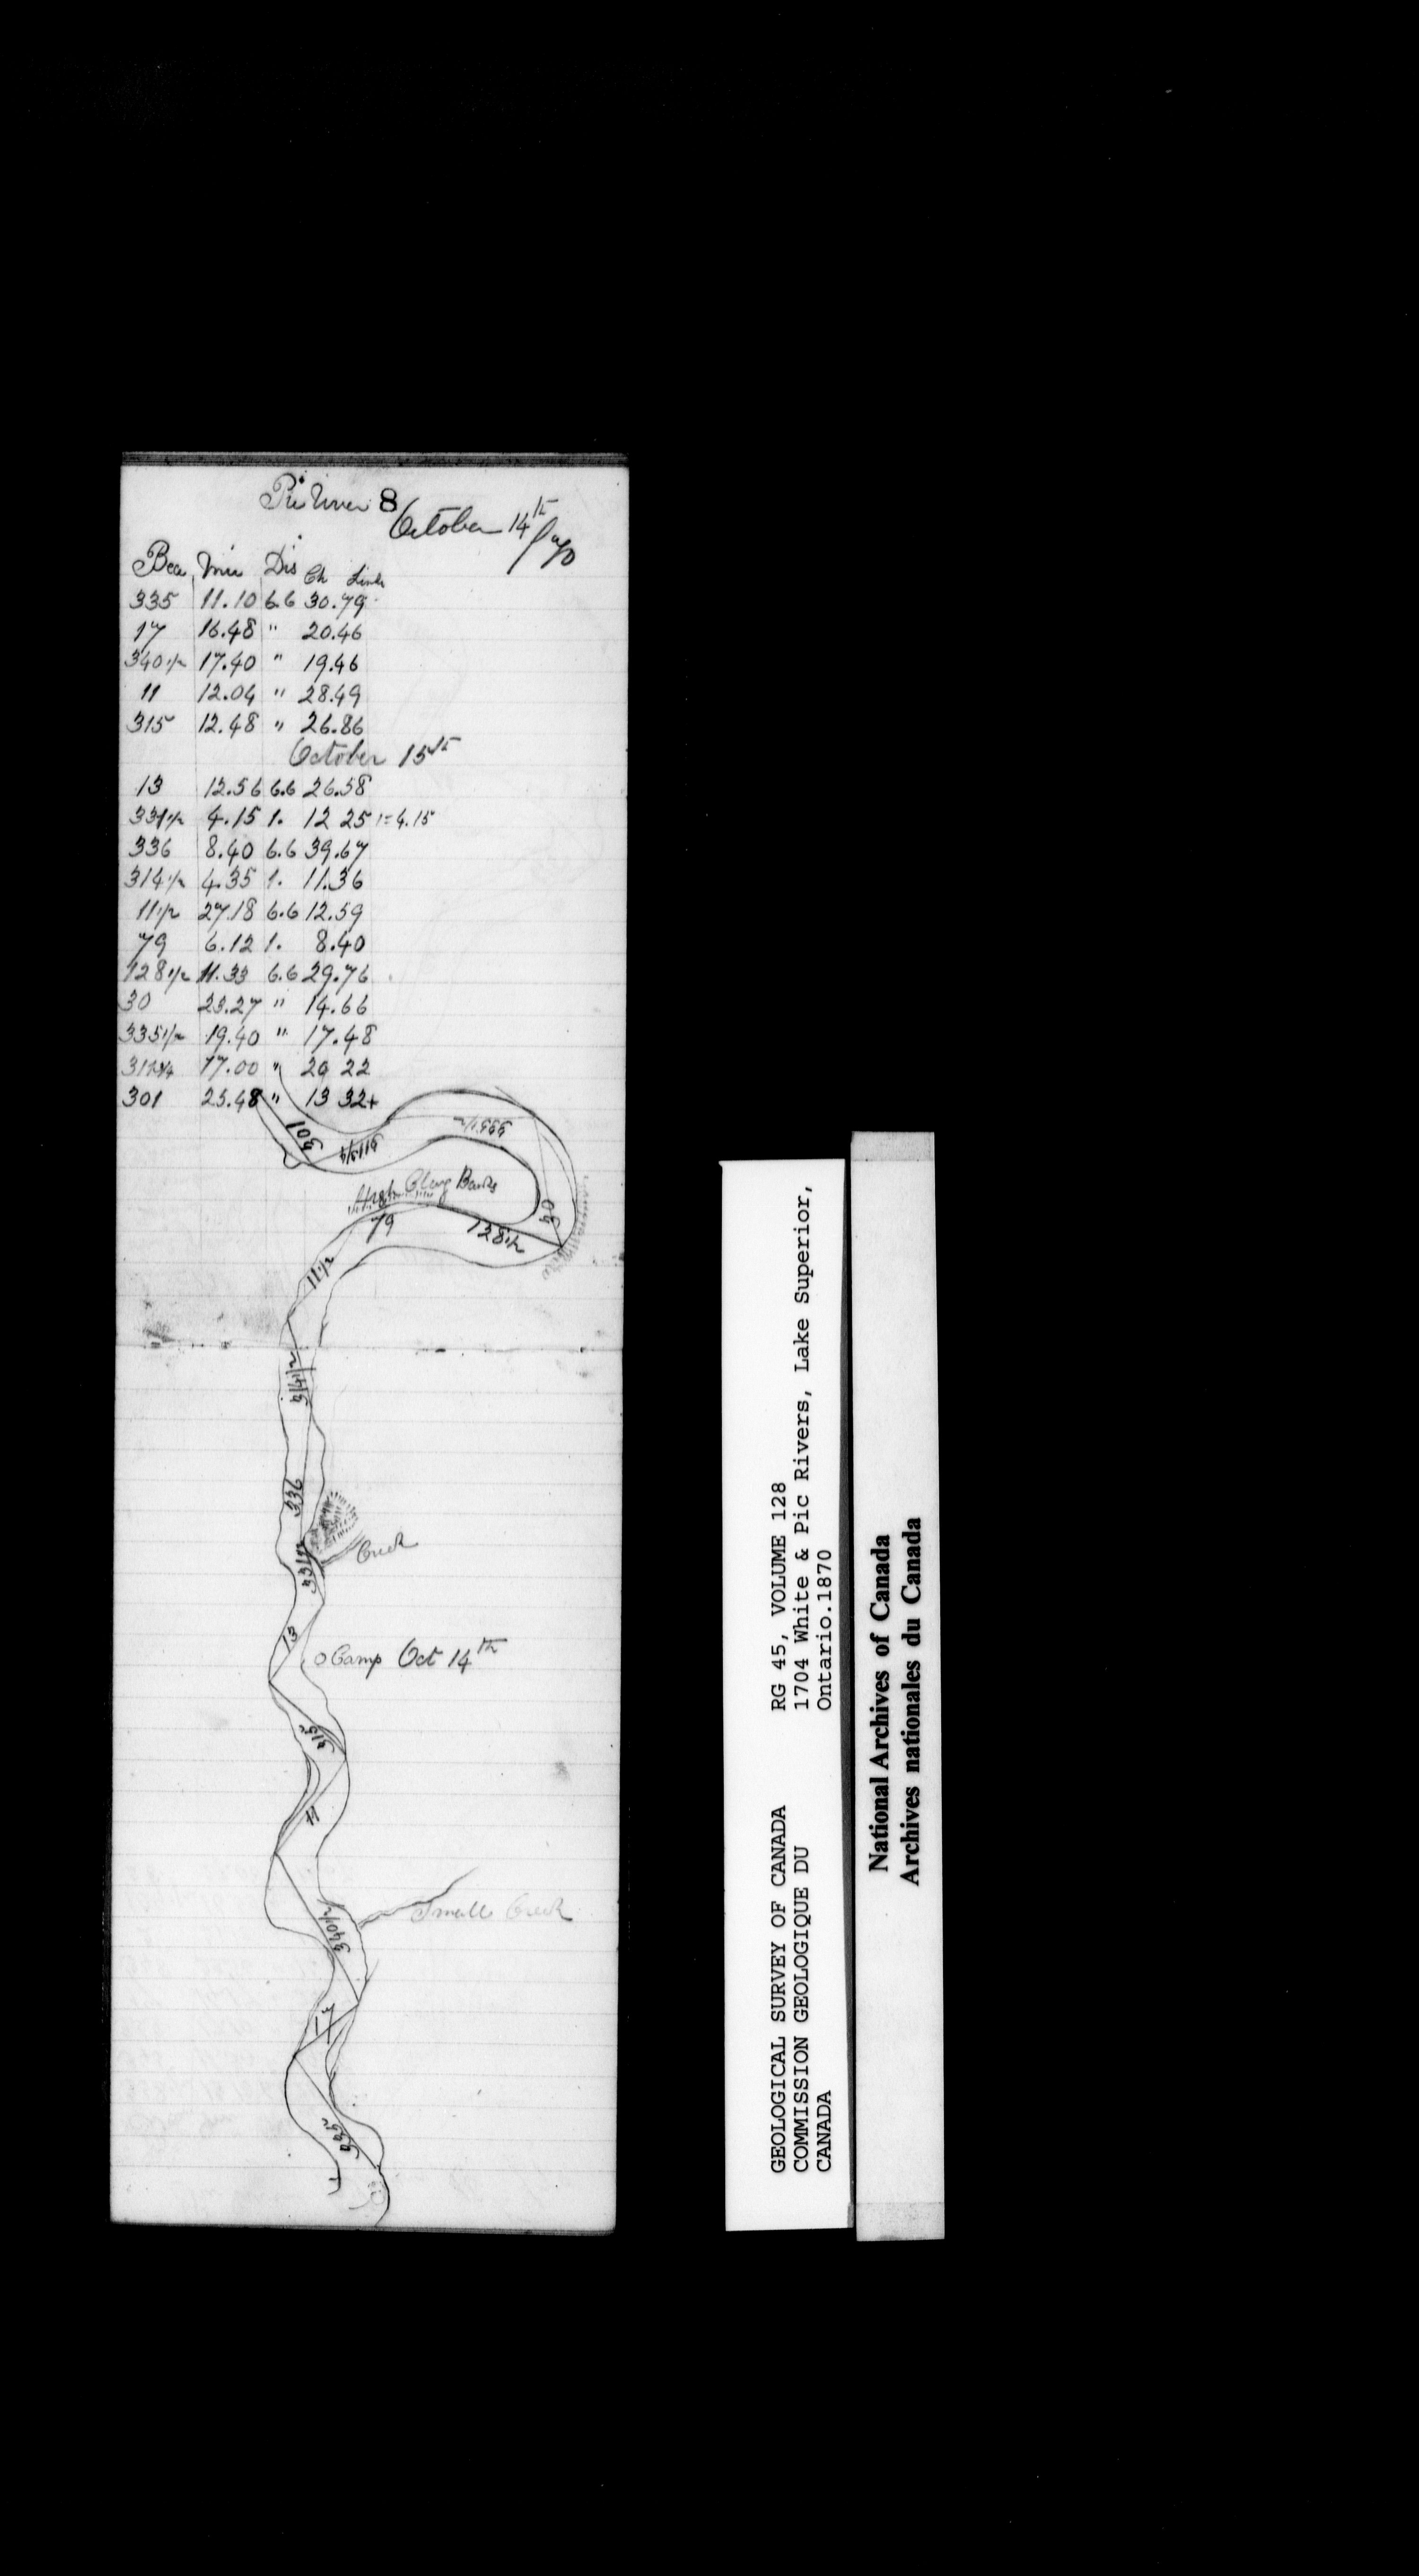 Pic River 8
October 14th /70
Bea Mic Dis Ch Links
335 11.10 6.6 30.79
17 16.48 " 20.46
340 1/2 17.40 " 19.46
11 12.04 " 28.49
315 12.48 " 26.86
October 15th
13 12.56 6.6 26.58
331 1/2 4.15 1. 12 25 1=4.15
336 8.40 6.6 39.67
314 1/2 4.35 1. 11.36
11 1/2 27.18 6.6 12.59
79 6.12 1. 8.40
128 1/2 11.33 6.6 29.76
30 23.27 " 14.66
335 1/2 19.40 " 17.48
311 3/4 17.00 " 20 22
301 25.48 " 13 32+
301
311 3/4
335 1/2
High Clay Banks
30
79
128 1/2
11 1/2
314 1/2
336
331 1/2
Creek
13
Camp Oct 14th
315
11
340 1/2
Small Creek
17
335
GEOLOGICAL SURVEY OF CANADA
COMMISSION GEOLOGIQUE DU
CANADA
RG 45, VOLUME 128
1704 White & Pic Rivers, Lake Superior,
Ontario.1870
National Archives of Canada
Archives nationales du Canada